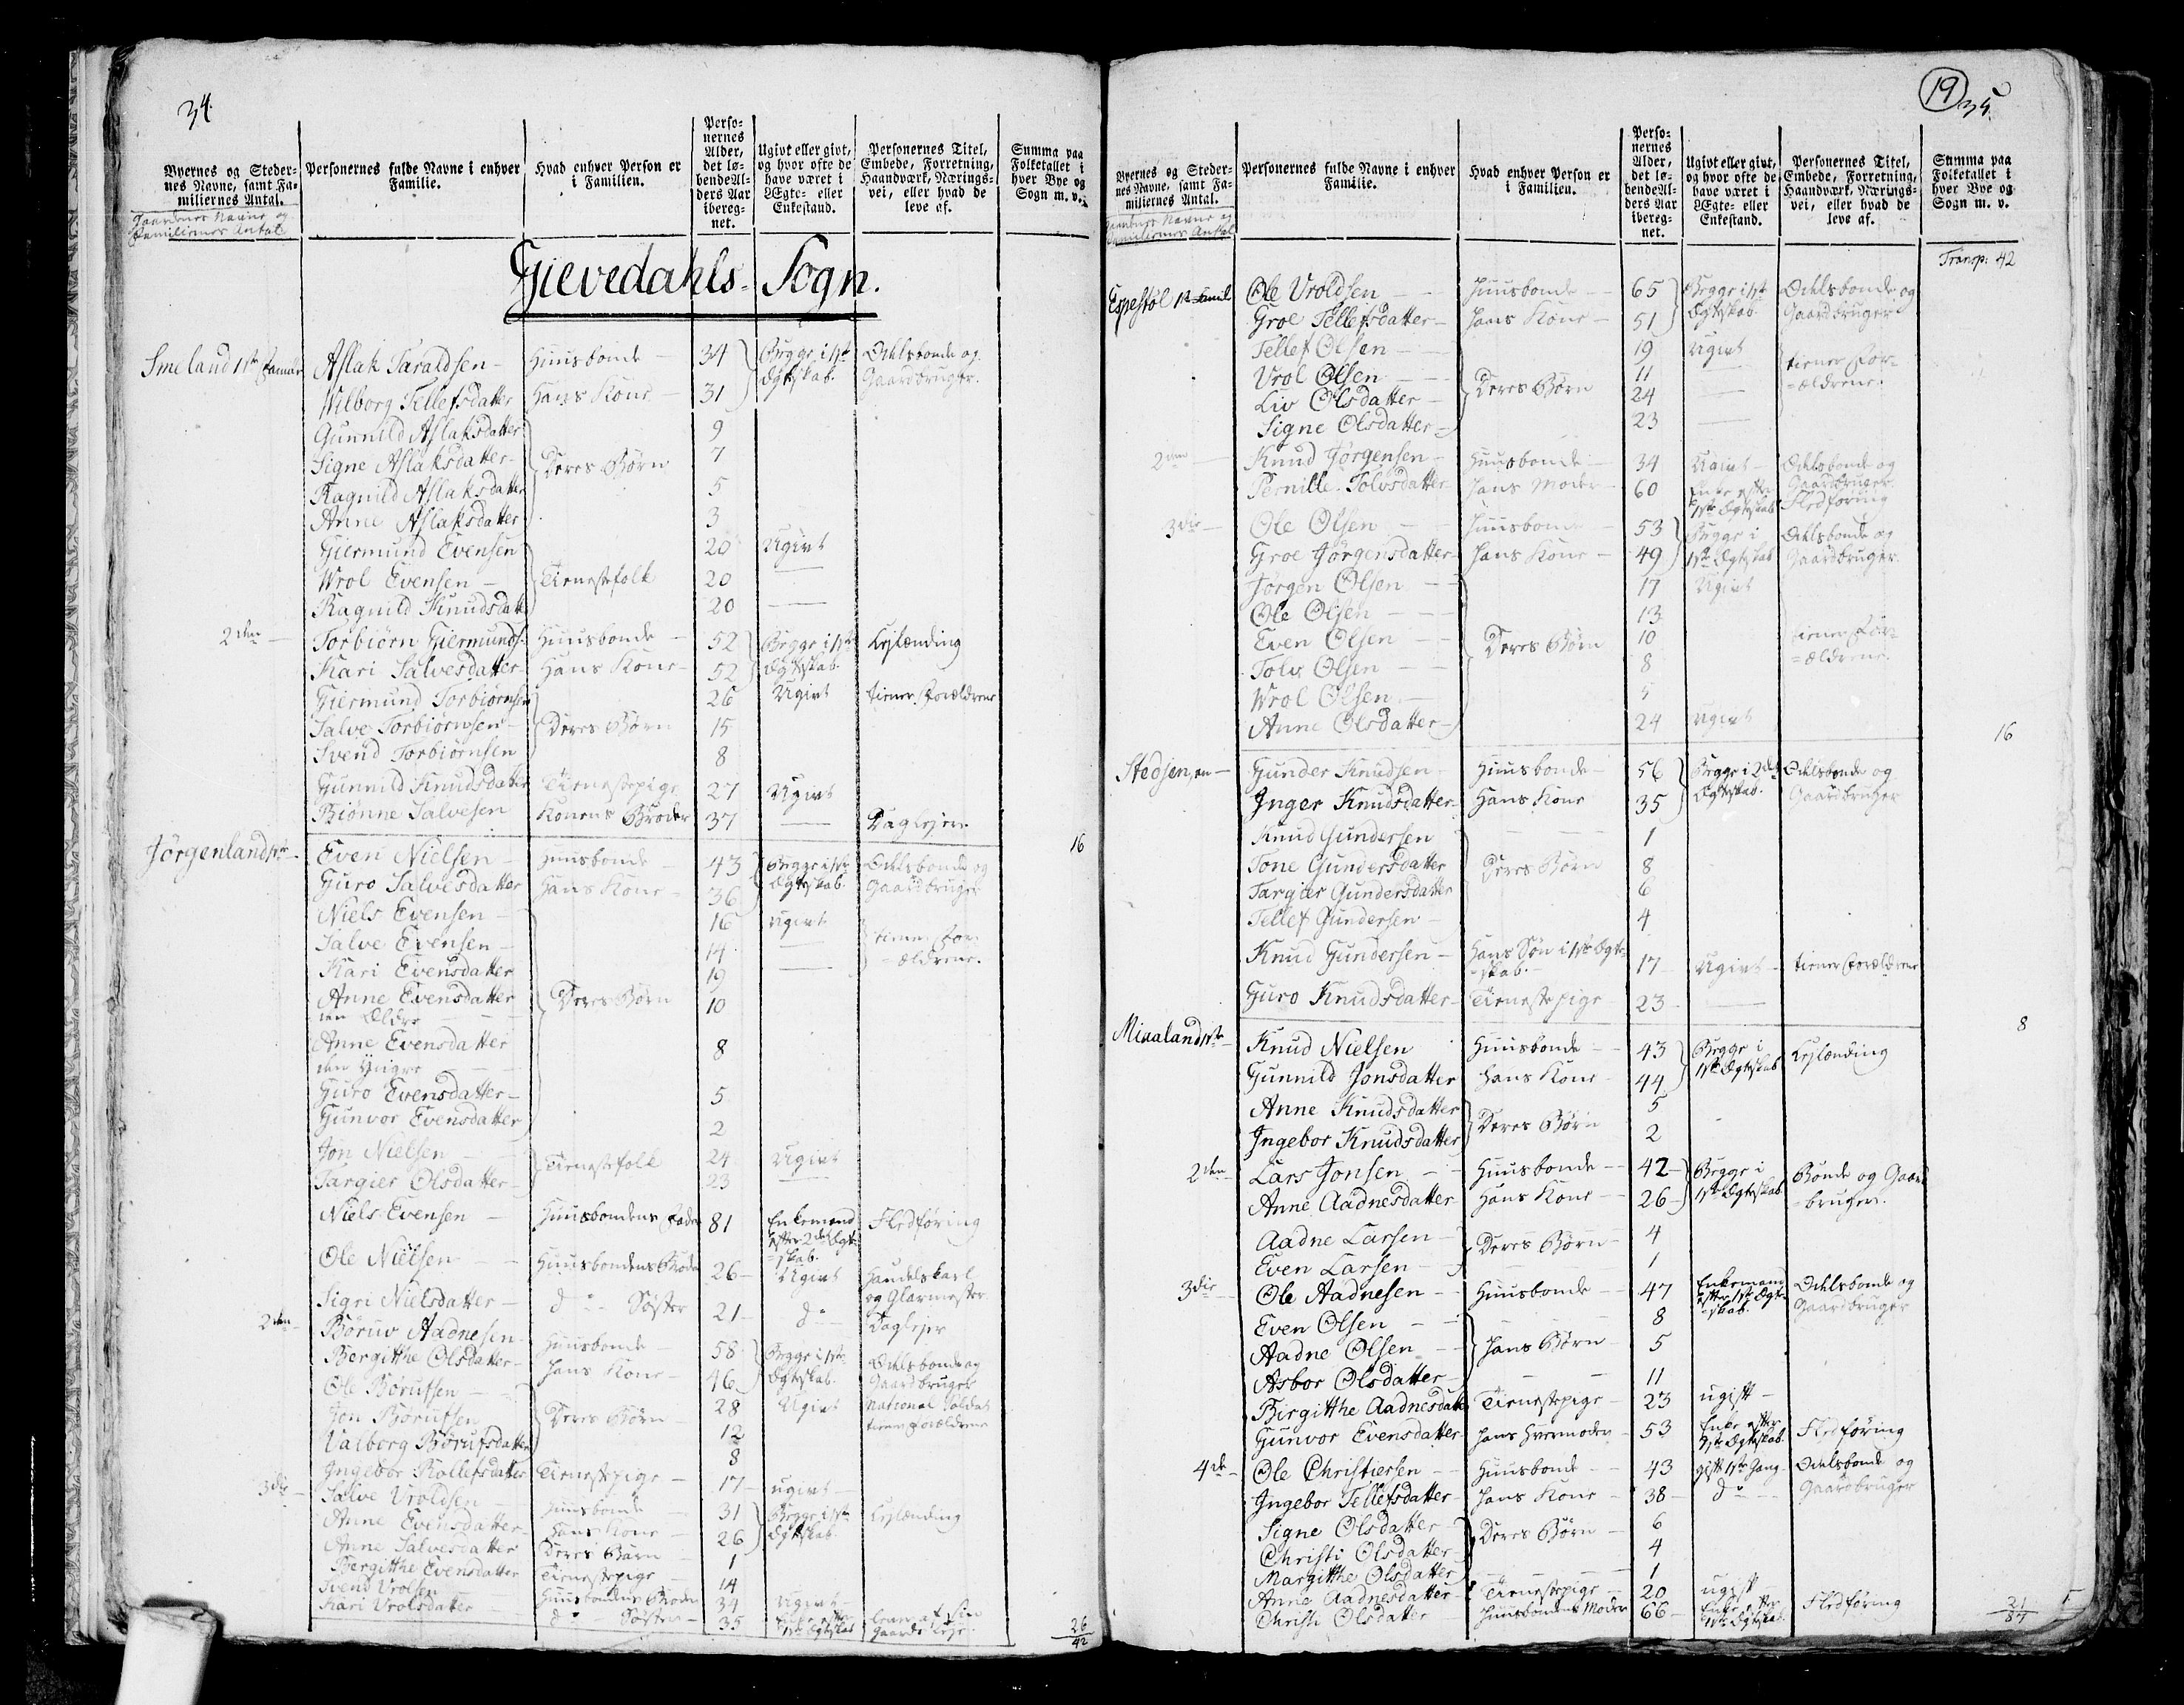 34.
Byernes og Steder-
nes Navne, samt Fa-
miliernes Antal.
Gaardenes Navne og
Familiernes Antal
Personernes fulde Navne i enhver
Familie.
Hvad enhver Person er
i Familien.
Perso-
nernes
Alder,
det lø-
bende Al-
ders Aar
ibereg-
net.
Ugivt eller givt,
og hvor ofte de
have været i
Ægte- eller
Enkestand.
Personernes Titel,
Embede, Forretning,
Haandværk, Nærings-
vei, eller hvad de
leve af.
Summa paa
Folketallet i
hver Bye og
Sogn m. v.
Gievedahls- Sogn.
Smeland 1ste Familie Aslak Taraldsen - Huusbonde - 34 Begge i 1ste Odelsbonde og
Wilborg Tellefsdatter Hans Kone - 31 Ægteskab. Gaardbruger.
Gunnild Aslaksdatter 9
Signe Aslaksdatter - Deres Børn 7
Ragnild Aslaksdatter 5
Anne Aslaksdatter 3
Giermund Evensen 20 Ugivt
Wrol Evensen - Tienestefolk 20 -
Ragnild Knudsdatt 20 -
2den - Torbiørn Giermunds. Huusbonde - 52 Begge i 1ste Lejlænding
Kari Salvesdatter - Hans Kone - 52 Ægteskab.
Giermund Torbiørnsen 26 Ugivt tiener Forældrene
Salve Torbiørnsen - Deres Børn 15
Svend Torbiørnsen 8
Gunnild Knudsdatter Tienestepige 27 Ugivt
Biønne Salvesen Konens Broder 37 - Daglejer
16
Jørgenland 1ste - Even Nielsen - Huusbonde - 43 Begge i 1ste Odelsbonde og
Guro Salvesdatter Hans Kone - 36 Ægteskab. Gaardbruger
Niels Evensen - 16 Ugivt
Salve Evensen - 14 - tiener For-
Kari Evensdatter 19 - =ældrene.
Anne Evensdatter Deres Børn 10
den Ældre
Anne Evensdatter 8
den Yngre
Guro Evensdatter - 5
Gunvor Evensdatter 2
Jon Nielsen - Tienestefolk 24 Ugivt
Targier Olsdatter - 23 -
Niels Evensen - Huusbondens Fader 81 Enkemand Fledføring
efter 2det Ægte-
=skab.
Ole Nielsen - Huusbondens Broder 26 - Ugivt Handelskarl
og Glarmester
Sigri Nielsdatter - do Søster 21 - do Daglejer
2den - Børuv Aadnesen - Huusbonde - 58 Begge i 1ste Odelsbonde og
Bergitthe Olsdatter - Hans Kone - 46 Ægteskab. Gaardbruger
Ole Børufsen - 28 Ugivt National Soldat
Jon Børufsen Deres Børn 12 tiener Forældrene
Valborg Børufsdatter 8
Ingebor Rollefsdatter Tienestepige - 17 - ugivt -
3die - Salve Vroldsen - Huusbonde 31 Begge i 1ste Lejlænding
Anne Evensdatter Hans Kone - 26 Ægteskab
Anne Salvesdatter Deres Barn - 1
Bergitthe Evensdatter Tienestepige - 14
Svend Vrolsen Huusbondens Broder 34 Ugivt
Kari Vrolsdatter - do Søster - 35 Enke efter lever af sin
1ste Ægteskab Gaards Leje.
26
42
19
35.
Byernes og Steder-
nes Navne, samt Fa-
miliernes Antal.
Gaardenes Navne og
Familiernes Antal
Personernes fulde Navne i enhver
Familie.
Hvad enhver Person er
i Familien.
Perso-
nernes
Alder,
det lø-
bende Al-
ders Aar
ibereg-
net.
Ugivt eller givt,
og hvor ofte de
have været i
Ægte- eller
Enkestand.
Personernes Titel,
Embede, Forretning,
Haandværk, Nærings-
vei, eller hvad de
leve af.
Summa paa
Folketallet i
hver Bye og
Sogn m. v.
Transp: 42
Espestøl 1st Famil Ole Vroldsen - Huusbonde - 65 Begge i 1st Odelsbonde og
Groe Tellefsdatter - Hans Kone - 51 Ægteskab Gaardbruger
Tellef Olsen - 19 Ugivt
Vrol Olsen - Deres Børn 11 - tiener For-
Liv Olsdatter - 24 - =ældrene.
Signe Olsdatter - 23 -
2den - Knud Jørgensen - Huusbonde - 34 Ugivt - Odelsbonde og
Gaardbruger.
Pernille Tolvsdatter Hans Moder - 60 Enke efter Fledføring
1ste Ægteskab
3die - Ole Olsen - Huusbonde 53 Begge i Odelsbonde og
Groe Jørgensdatter Hans Kone - 49 1ste Ægteskab Gaardbruger.
Jørgen Olsen - 17 Ugivt
Ole Olsen - 13
Even Olsen - Deres Børn 10 tiener For-
Tolv Olsen - 8 =ældrene.
Wrol Olsen - 5
Anne Olsdatter - 24 Ugivt
16
Stedjen, en - Gunder Knudsen - Huusbonde - 56 Begge i 2det Odelsbonde og
Inger Knudsdatter - Hans Kone 35 Ægteskab. Gaardbruger
Knud Gundersen 1
Tone Gundersdatter Deres Børn 8
Targier Gundersdatter 6
Tellef Gundersen - 4
Knud Gundersen - Hans Søn i 1ste Ægte-
=skab. - 17 - Ugivt - tiener Forældrene
Guro Knudsdatter - Tienestepige - 23 -
8
Miaaland 1ste - Knud Nielsen Huusbonde - 43 Begge i Lejlænding
Gunnild Jonsdatter Hans Kone - 44 1ste Ægteskab
Anne Knudsdatter Deres Børn 5
Ingebor Knudsdatter 2
2den - Lars Jonsen - Huusbonde - 42 - Begge i Bonde og Gaard
Anne Aadnesdatter Hans Kone - 26 - 1ste Ægteskab =bruger.
Aadne Larsen - Deres Børn - 4
Even Larsen - 1
3die - Ole Aadnesen - Huusbonde - 47 Enkemand Odelsbonde og
efter 1ste Ægte- Gaardbruger
=skab.
Even Olsen - 8
Aadne Olsen - Hans Børn - 5
Asbor Olsdatter - 11
Birgitthe Aadnesdatter Tienestepige - 23 ugift -
Gunvor Evensdatter Hans Svermoder - 53 Enke efter Fledføring
1ste Ægteskab.
4de - Ole Christiersen - Huusbonde - 43 gift 1ste Gang - Odelsbonde og
Ingebor Tellefsdatter - Hans Kone - 38 - do - Gaardbruger
Signe Olsdatter - Deres Børn - 6
Christi Olsdatter 4
Margitthe Olsdatter 1
Anne Aadnesdatter - Tienestepige - 20 ugift
Christi Olsdatter Huusbondens Moder 66 - Enke efter Fledføring
1ste Ægteskab.
21
87